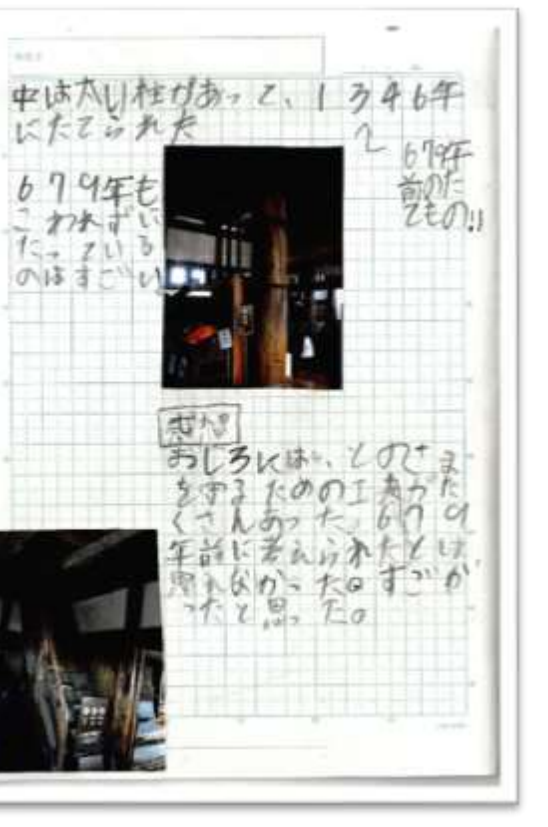 中は太い柱があって、1346年
にたてられた
679年
前のた
てもの!!
679年も
こわれずい
たっている
のはすごい
感想
おしろには、とのさま
をするための工夫がた
くさんあった。679
年前に考えられたとは
思えなかった。すごか
ったと思った。